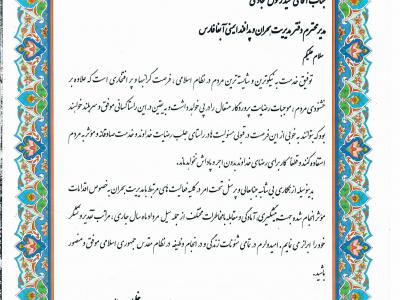 جناب آقای
مدیر محترم دفتر مدیریت بحران و پدافند ایمنی آبفا فارس
سلام علیکم
توفیق خدمت به نیکوترین و شایسته ترین مردم در نظام اسلامی، فرصت گرانبها و پر افتخاری است که علاوه بر
خشنودی مردم، موجبات رضایت پروردگار متعال را در پی خواهد داشت و بی یقین در این راستا کسانی موفق و سربلند خواهند
بود که بتوانند به خوبی از این فرصت در قبول مسئولیت ها در راستای جلب رضایت خداوند و خدمت صادقانه و موثر به مردم
استفاده کنند و قطعا کار برای رضای خداوند بدون اجر و پاداش نخواهد ماند.
بدینوسیله از همکاری بی شائبه جنابعالی و پرسنل تحت امر در کلیه فعالیت های مرتبط با مدیریت بحران به خصوص اقدامات
موثر انجام شده جهت پیشگیری، آمادگی و مقابله با مخاطرات مختلف از جمله سیل مرداد ماه سال جاری، مراتب تقدیر و تشکر
خود را ابراز می نمایم. امیدوارم در تمامی شئونات زندگی و در انجام وظیفه در نظام مقدس جمهوری اسلامی موفق و منصور
باشید.